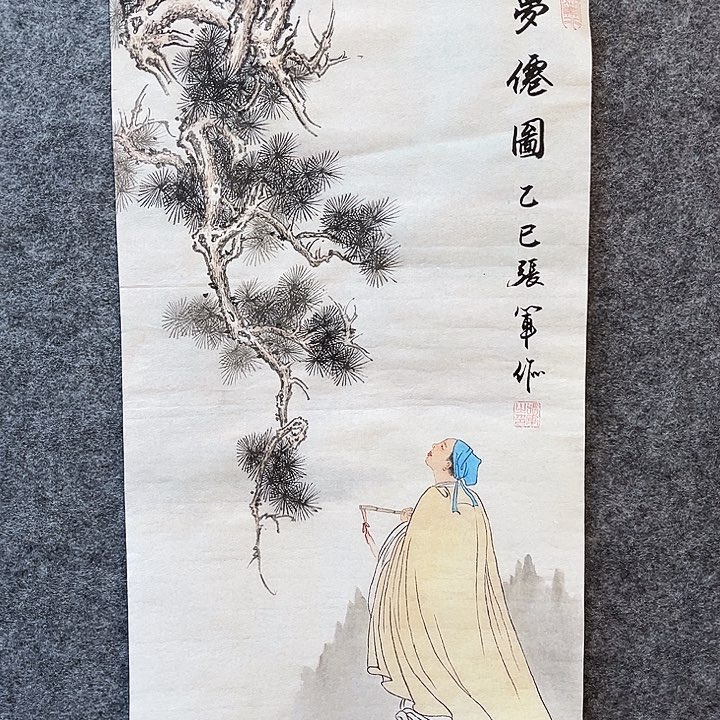 夢僊圖乙巳張軍作